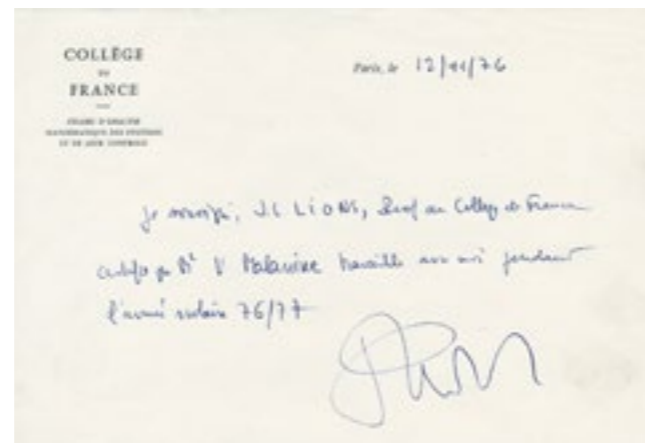 COLLÈGE
DE
FRANCE
CHAIRE D'ANALYSE
MATHÉMATIQUE DES SYSTÈMES
ET DE LEUR CONTRÔLE
Paris, le 12/11/76
Je soussigné, J.L LIONS, Prof au Collège de France
certifie que Mr V travaille avec moi pendant
l'année scolaire 76/77